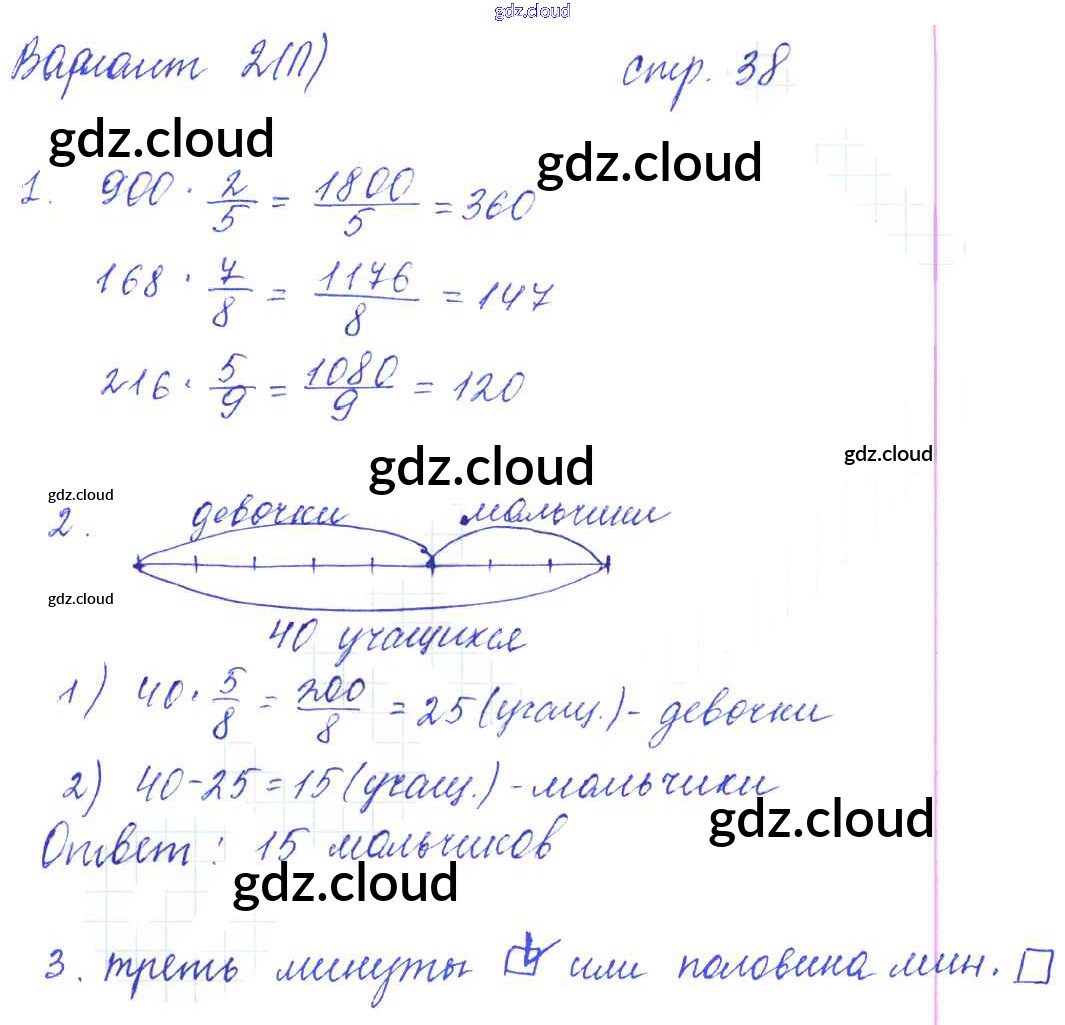 gdz.cloud
Вариант 2(П) стр. 38
gdz.cloud
gdz.cloud
1. 900 · 2/5 = 1800/5 = 360
168 · 7/8 = 1176/8 = 147
216 · 5/9 = 1080/9 = 120
gdz.cloud
gdz.cloud
gdz.cloud
2. девочки мальчики
gdz.cloud
40 учащихся
1) 40 · 5/8 = 200/8 = 25 (учащ.) - девочки
2) 40 - 25 = 15 (учащ.) - мальчики
gdz.cloud
Ответ: 15 мальчиков
gdz.cloud
3. треть минуты ☑ или половина мин. □